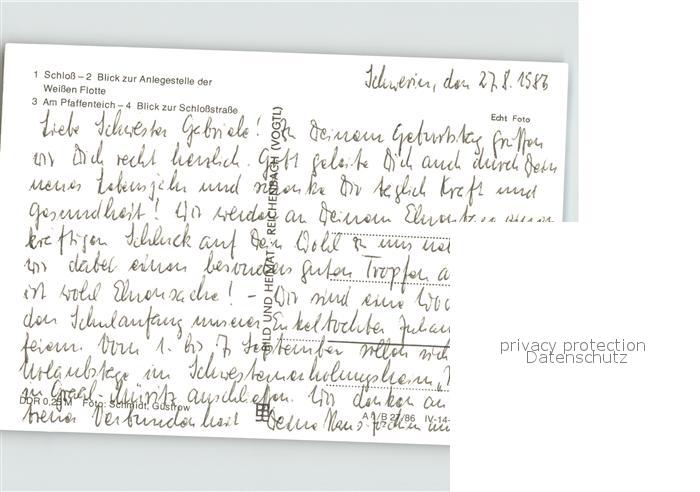 1 Schloß – 2 Blick zur Anlegestelle der
Weißen Flotte
3 Am Pfaffenteich – 4 Blick zur Schloßstraße
Schwerin, den 27.8.1986
Echt Foto
Liebe Schwester Gabriele! Zu Deinem Geburtstag grüßen
wir Dich recht herzlich. Gott geleite Dich auch durch Dein
neues Lebensjahr und schenke Dir täglich Kraft und
Gesundheit! Wir werden an Deinem Ehrentag
kräftigen Schluck auf Dein Wohl zu uns
wir dabei einen besonders guten Tropfen
ist wohl Ehrensache! – Wir sind eine
den Schulanfang unserer Enkeltochter
feiern. Vom 1. bis 7. September sollen sich
Urlaubstage im Schwesternerholungsheim
in Graal-Müritz anschließen. Wir denken an
treuer Verbundenheit Deine Hans-Jochen
BILD UND HEIMAT REICHENBACH (VOGTL)
DDR 0,25 M Foto: Schmidt, Güstrow
A 1/B 27/86 IV-14-
privacy protection
Datenschutz